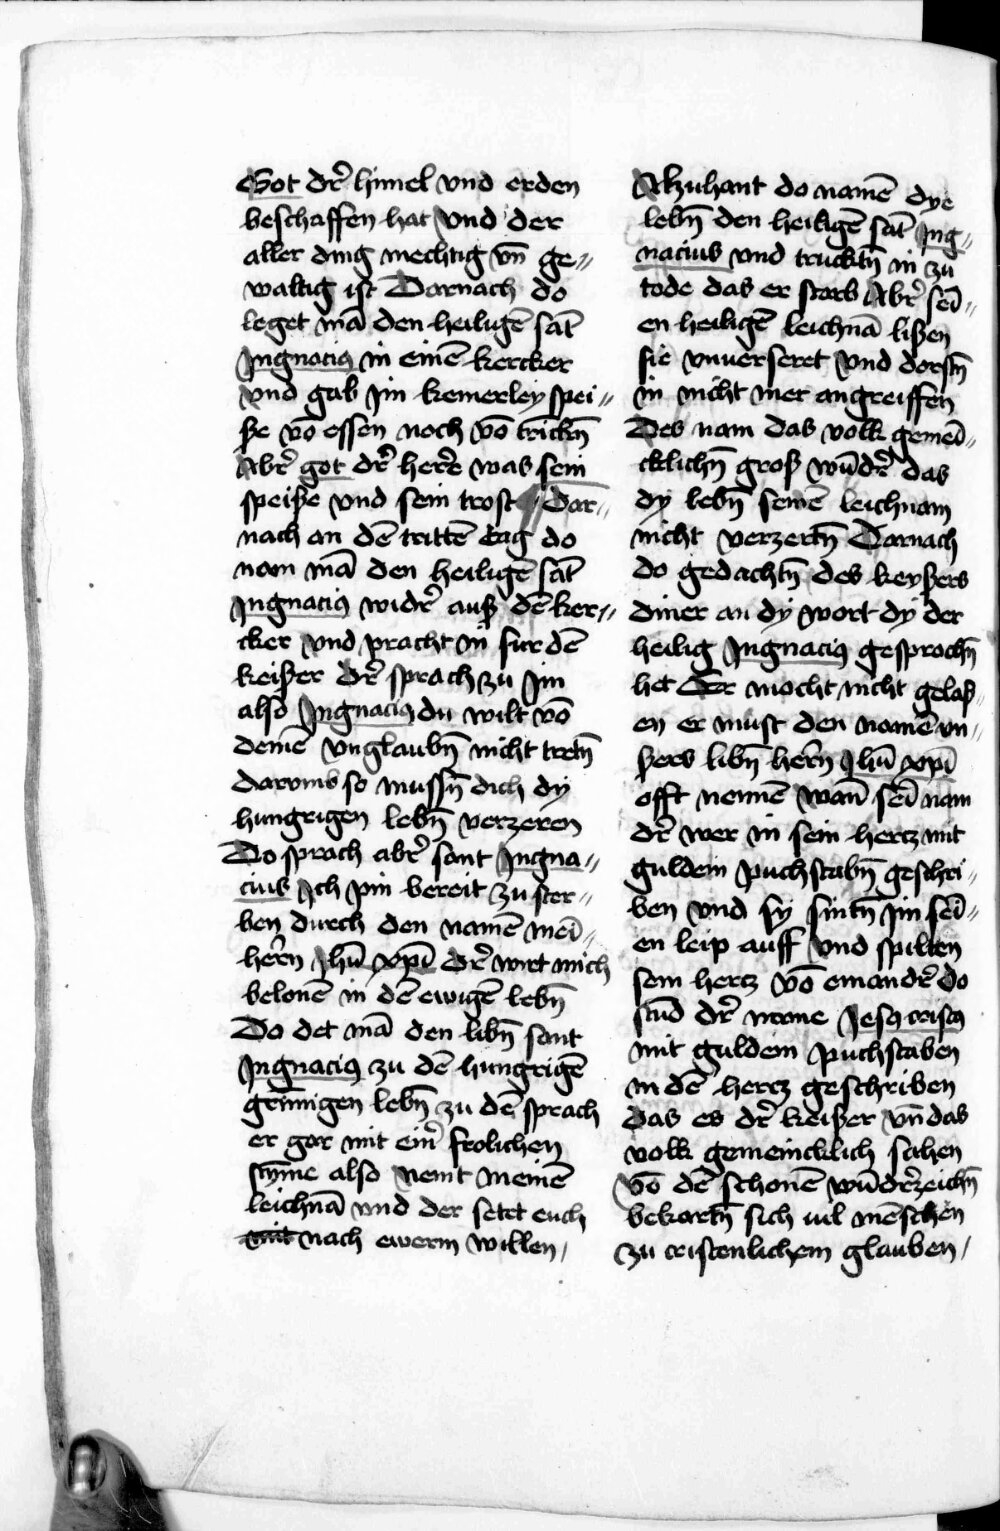 Got dr̃ himel vnd erden
beschaffen hat Vnd der
aller ding mechtig vn̄ ge〃
waltig ist Darnach do
leget mā den heiligē sāt
Jngnaciꝯ in einē kercker
vnd gab jm kemerley spei〃
ße vō essen noch vō trickn̄
Abr̃ got dr̃ herr̃e was sein
speiße vnd sein trost Dar〃
nach an dē trittē tag do
nam mā den heiligē sāt
Jngnaciꝯ widr̃ auß dē ker〃
cker vnd pracht in fur dē
keißer dr̃ sprach zu jm
also Jngnaciꝯ du wilt vō
deinē vnglaubn̄ nicht tretn̄
darvmb so mussn̄ dich dy
hungrigen lebn̄ verzeren
Do sprach abr̃ sant Jngna〃
cius Jch pin bereit zu ster〃
ben durch den namē mei̅〃
her̃n Jhū xp̄i dr̃ wirt mich
belonē in dē ewigē lebn̄
Do det mā den libn̄ sant
Jngnaciꝯ zu dē hungrigē
grimigen lebn̄ zu dē sprach
er gar mit eim̃ frolichen
stȳme also nemt meinē
leichnā vnd der setet euch
nach ewerm willen /
Alzuhant do namē dye
lebn̄ den heiligē sāt Jng〃
nacius vnd trucktn̄ in zu
tode das er starb Abr̃ sei̅〃
en heiligē leichnā lißen
sie vnuerseret Vnd dorstn̄
in nicht mer angreiffen
Des nam das volk gemei̅〃
cklichn̄ groß wūdr̃ das
dy lebn̄ seinē leichnam
nicht verzertn̄ Darnach
do gedachtn̄ des keyßers
diner an dy wort dy der
heilig Jngnaciꝯ gesprochn̄
het Er mocht nicht gelaß〃
en er must den namē vn〃
ßers libn̄ her̃n Jhū xp̄i
offt nennē wan̄ sei̅ nam
dr̃ wer in sein hertz mit
guldein puchstabn̄ geschri〃
ben vnd sy sintn̄ jm sei̅〃
en leip auff Vnd spilten
sein hertz vō einandr̃ do
stūd dr̃ name Jesꝯ cristꝯ
mit guldein puchstaben
in dē hertz geschriben
das es dr̃ keißer vn̄ das
volk gemeincklich sahen
Vō dē schonē wūdr̃zeichn̄
bekartn̄ sich uil mēschen
zu cristenlichem glauben /